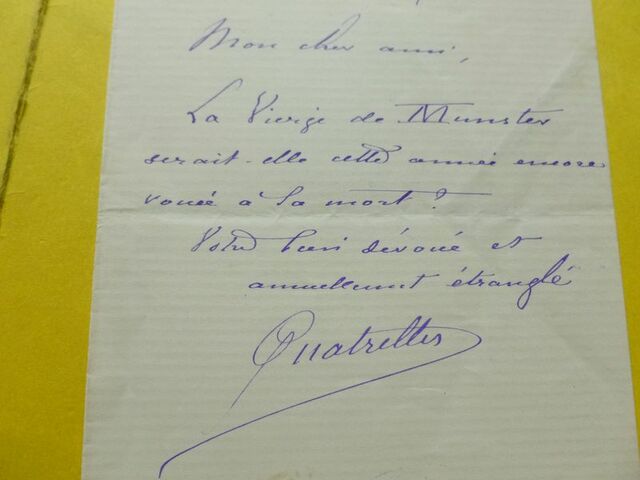 Mon cher ami,
La Vierge de Munster
serait-elle cette année encore
vouée à la mort ?
Votre bien dévoué et
annuellement étranglé
Quatrelles